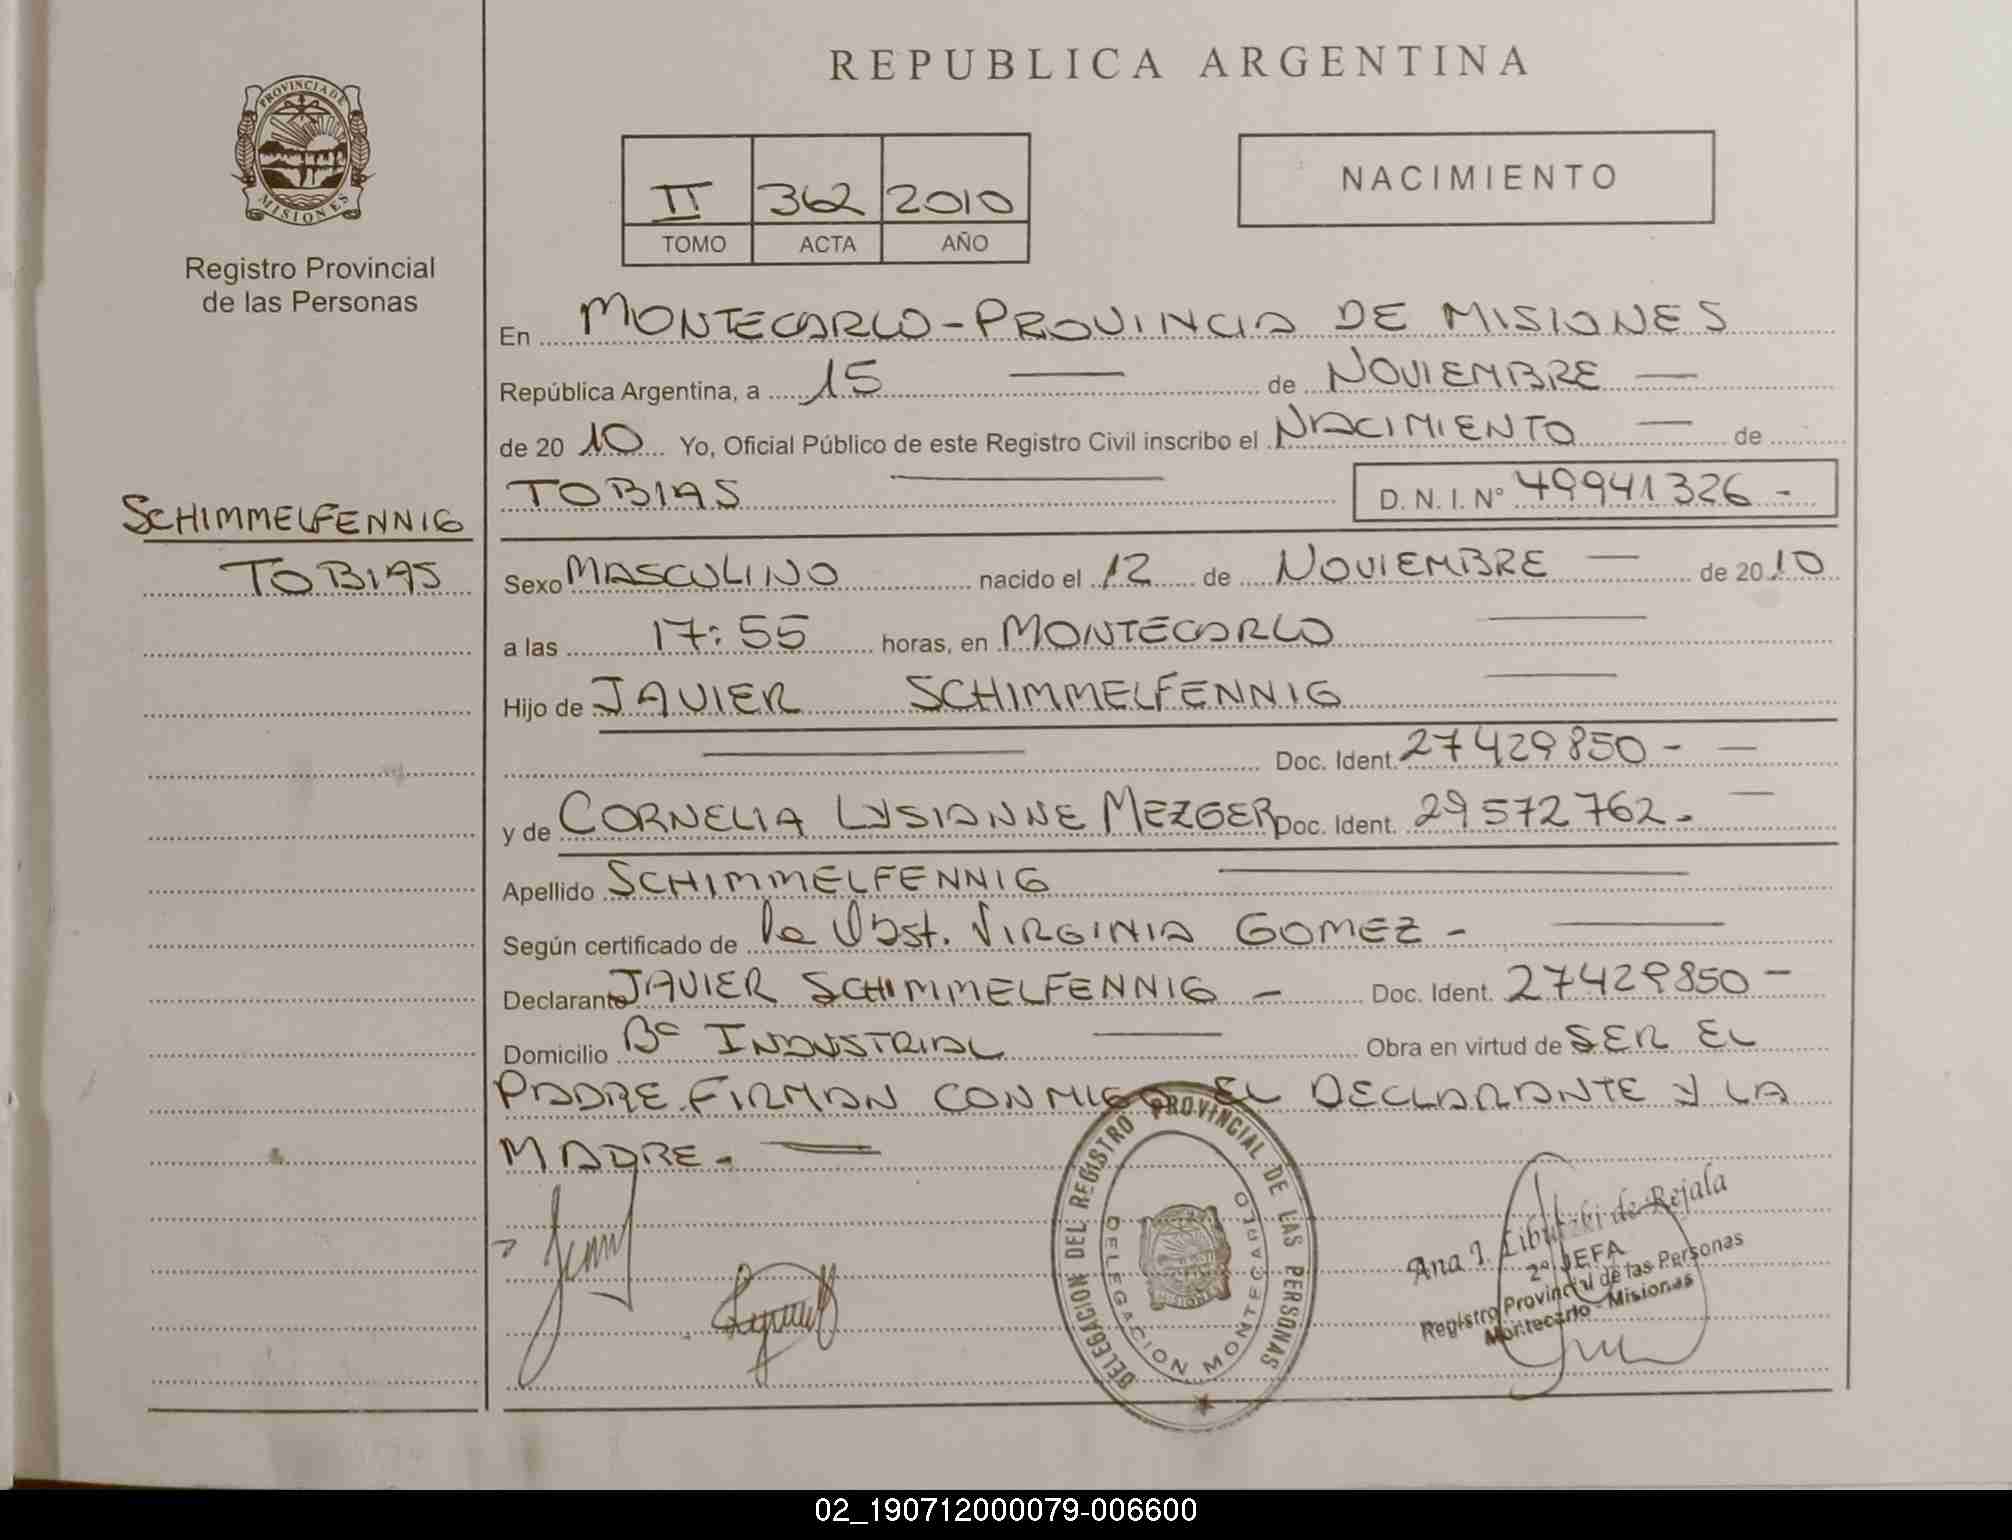 REPUBLICA ARGENTINA
PROVINCIA DE MISIONES
Registro Provincial
de las Personas
II 362 2010
TOMO ACTA AÑO
NACIMIENTO
En MONTECARLO - PROVINCIA DE MISIONES
República Argentina, a 15 de NOVIEMBRE
de 20 10 Yo, Oficial Público de este Registro Civil inscribo el NACIMIENTO de
TOBIAS D. N. I. N° 49941326 -
SCHIMMELFENNIG
TOBIAS
Sexo MASCULINO nacido el 12 de NOVIEMBRE de 20 10
a las 17:55 horas, en MONTECARLO
Hijo de JAVIER SCHIMMELFENNIG
Doc. Ident. 27429850 -
y de CORNELIA LYSIANNE MEZGER Doc. Ident. 29572762 -
Apellido SCHIMMELFENNIG
Según certificado de la Obst. VIRGINIA GOMEZ -
Declarante JAVIER SCHIMMELFENNIG - Doc. Ident. 27429850 -
Domicilio Bº INDUSTRIAL Obra en virtud de SER EL
PADRE. FIRMAN CONMIGO EL DECLARANTE Y LA
MADRE. -
DELEGACION DEL REGISTRO PROVINCIAL DE LAS PERSONAS
DELEGACION MONTECARLO
Ana I. de Rejala
2º JEFA
Registro Provincial de las Personas
Montecarlo - Misiones
02_190712000079-006600